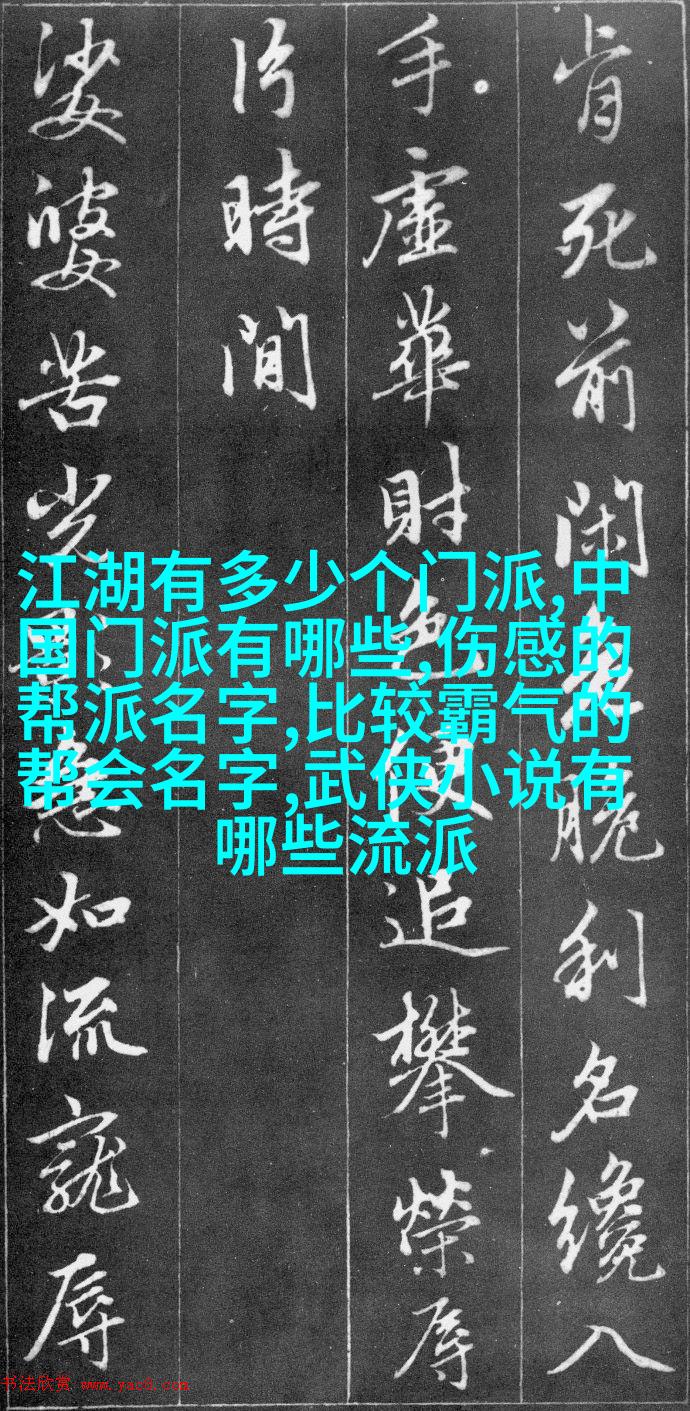 肯死前閑利名纔入
手虛華財色追攀榮辱
片時間
娑婆苦光急如流寵辱
江湖有多少个门派,中
国门派有哪些,伤感的
帮派名字,比较霸气的
帮会名字,武侠小说有
哪些流派
书法欣赏 www.yac8.com